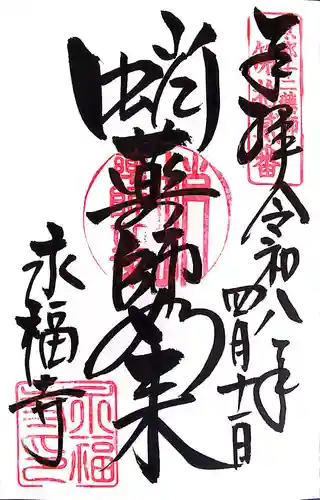 奉拝
令和八年
四月十一日
蛸薬師如来
永福寺
永福寺印